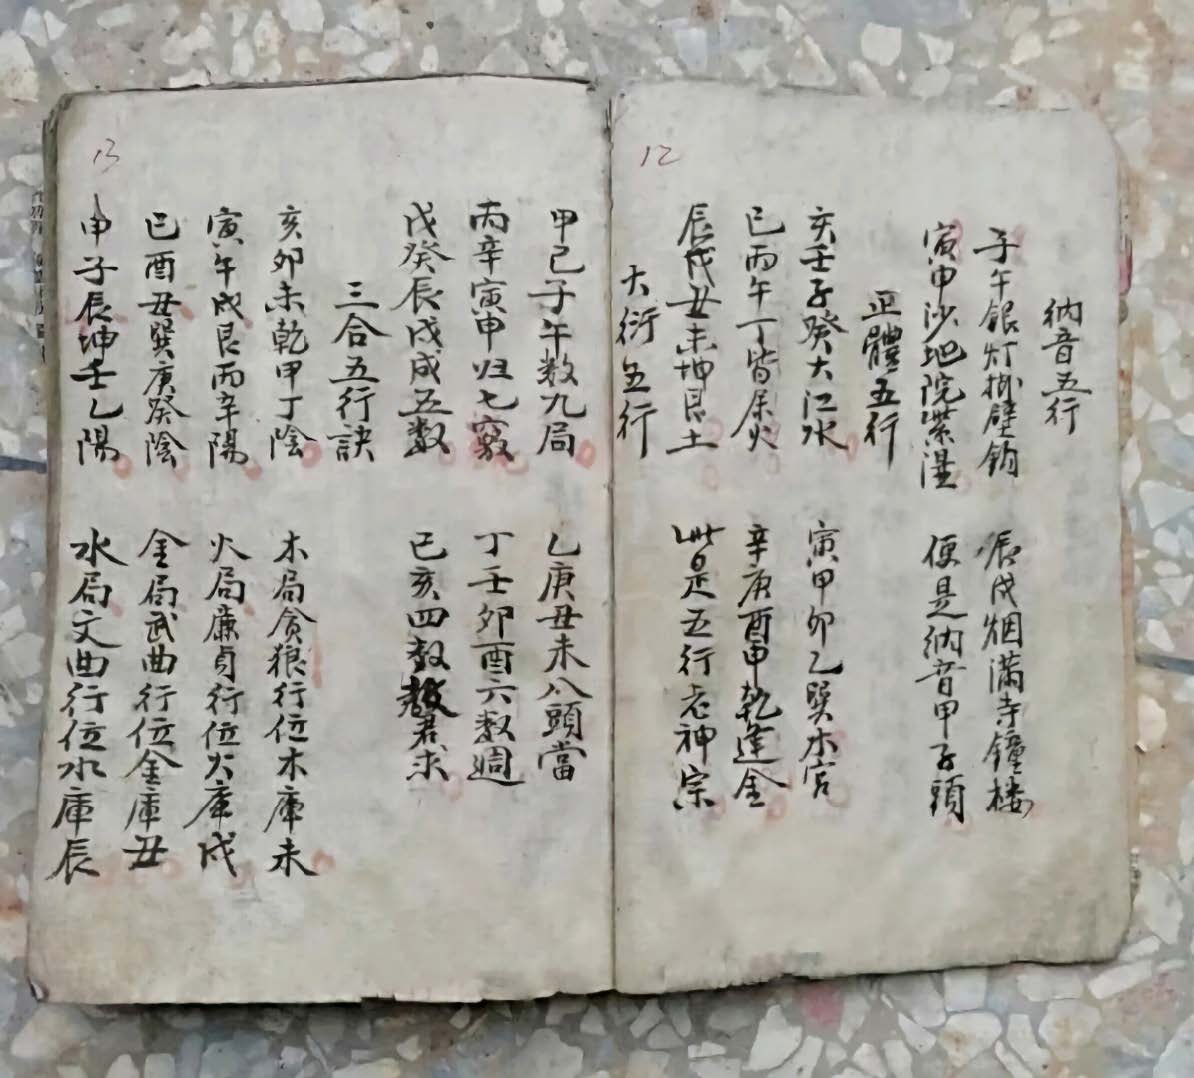 12
納音五行
子午銀灯掛壁鈎 辰戌烟滿寺鐘楼
寅申沙地院柴湿 便是納音甲子頭
正體五行
亥壬子癸大江水 寅甲卯乙巽木宫
巳丙午丁皆属火 辛庚酉申乾逢金
辰戌丑未坤艮土 此是五行老神宗
大衍五行
13
甲己子午数九局 乙庚丑未八頭當
丙辛寅申归七窮 丁壬卯酉六数週
戊癸辰戌成五数 巳亥四数 君求
三合五行訣
亥卯未乾甲丁陰 木局贪狼行位木庫未
寅午戌艮丙辛陽 火局廉貞行位火庫戌
巳酉丑巽庚癸陰 金局武曲行位金庫丑
申子辰坤壬乙陽 水局文曲行位水庫辰